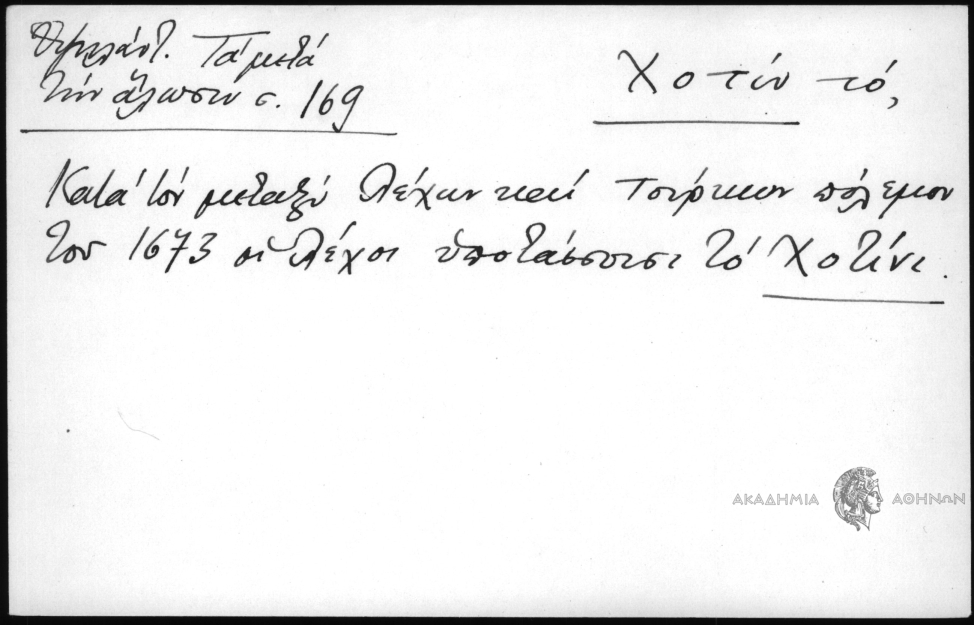 Ὑψηλάντ. Τά μετά
τήν ἅλωσιν σ. 169
Χοτίν τό,
Κατά τόν μεταξύ Λέχων καί Τούρκων πόλεμον
του 1673 οἱ Λέχοι ὑποτάσσουσι τό Χοτίνι.
ΑΚΑΔΗΜΙΑ ΑΘΗΝΩΝ